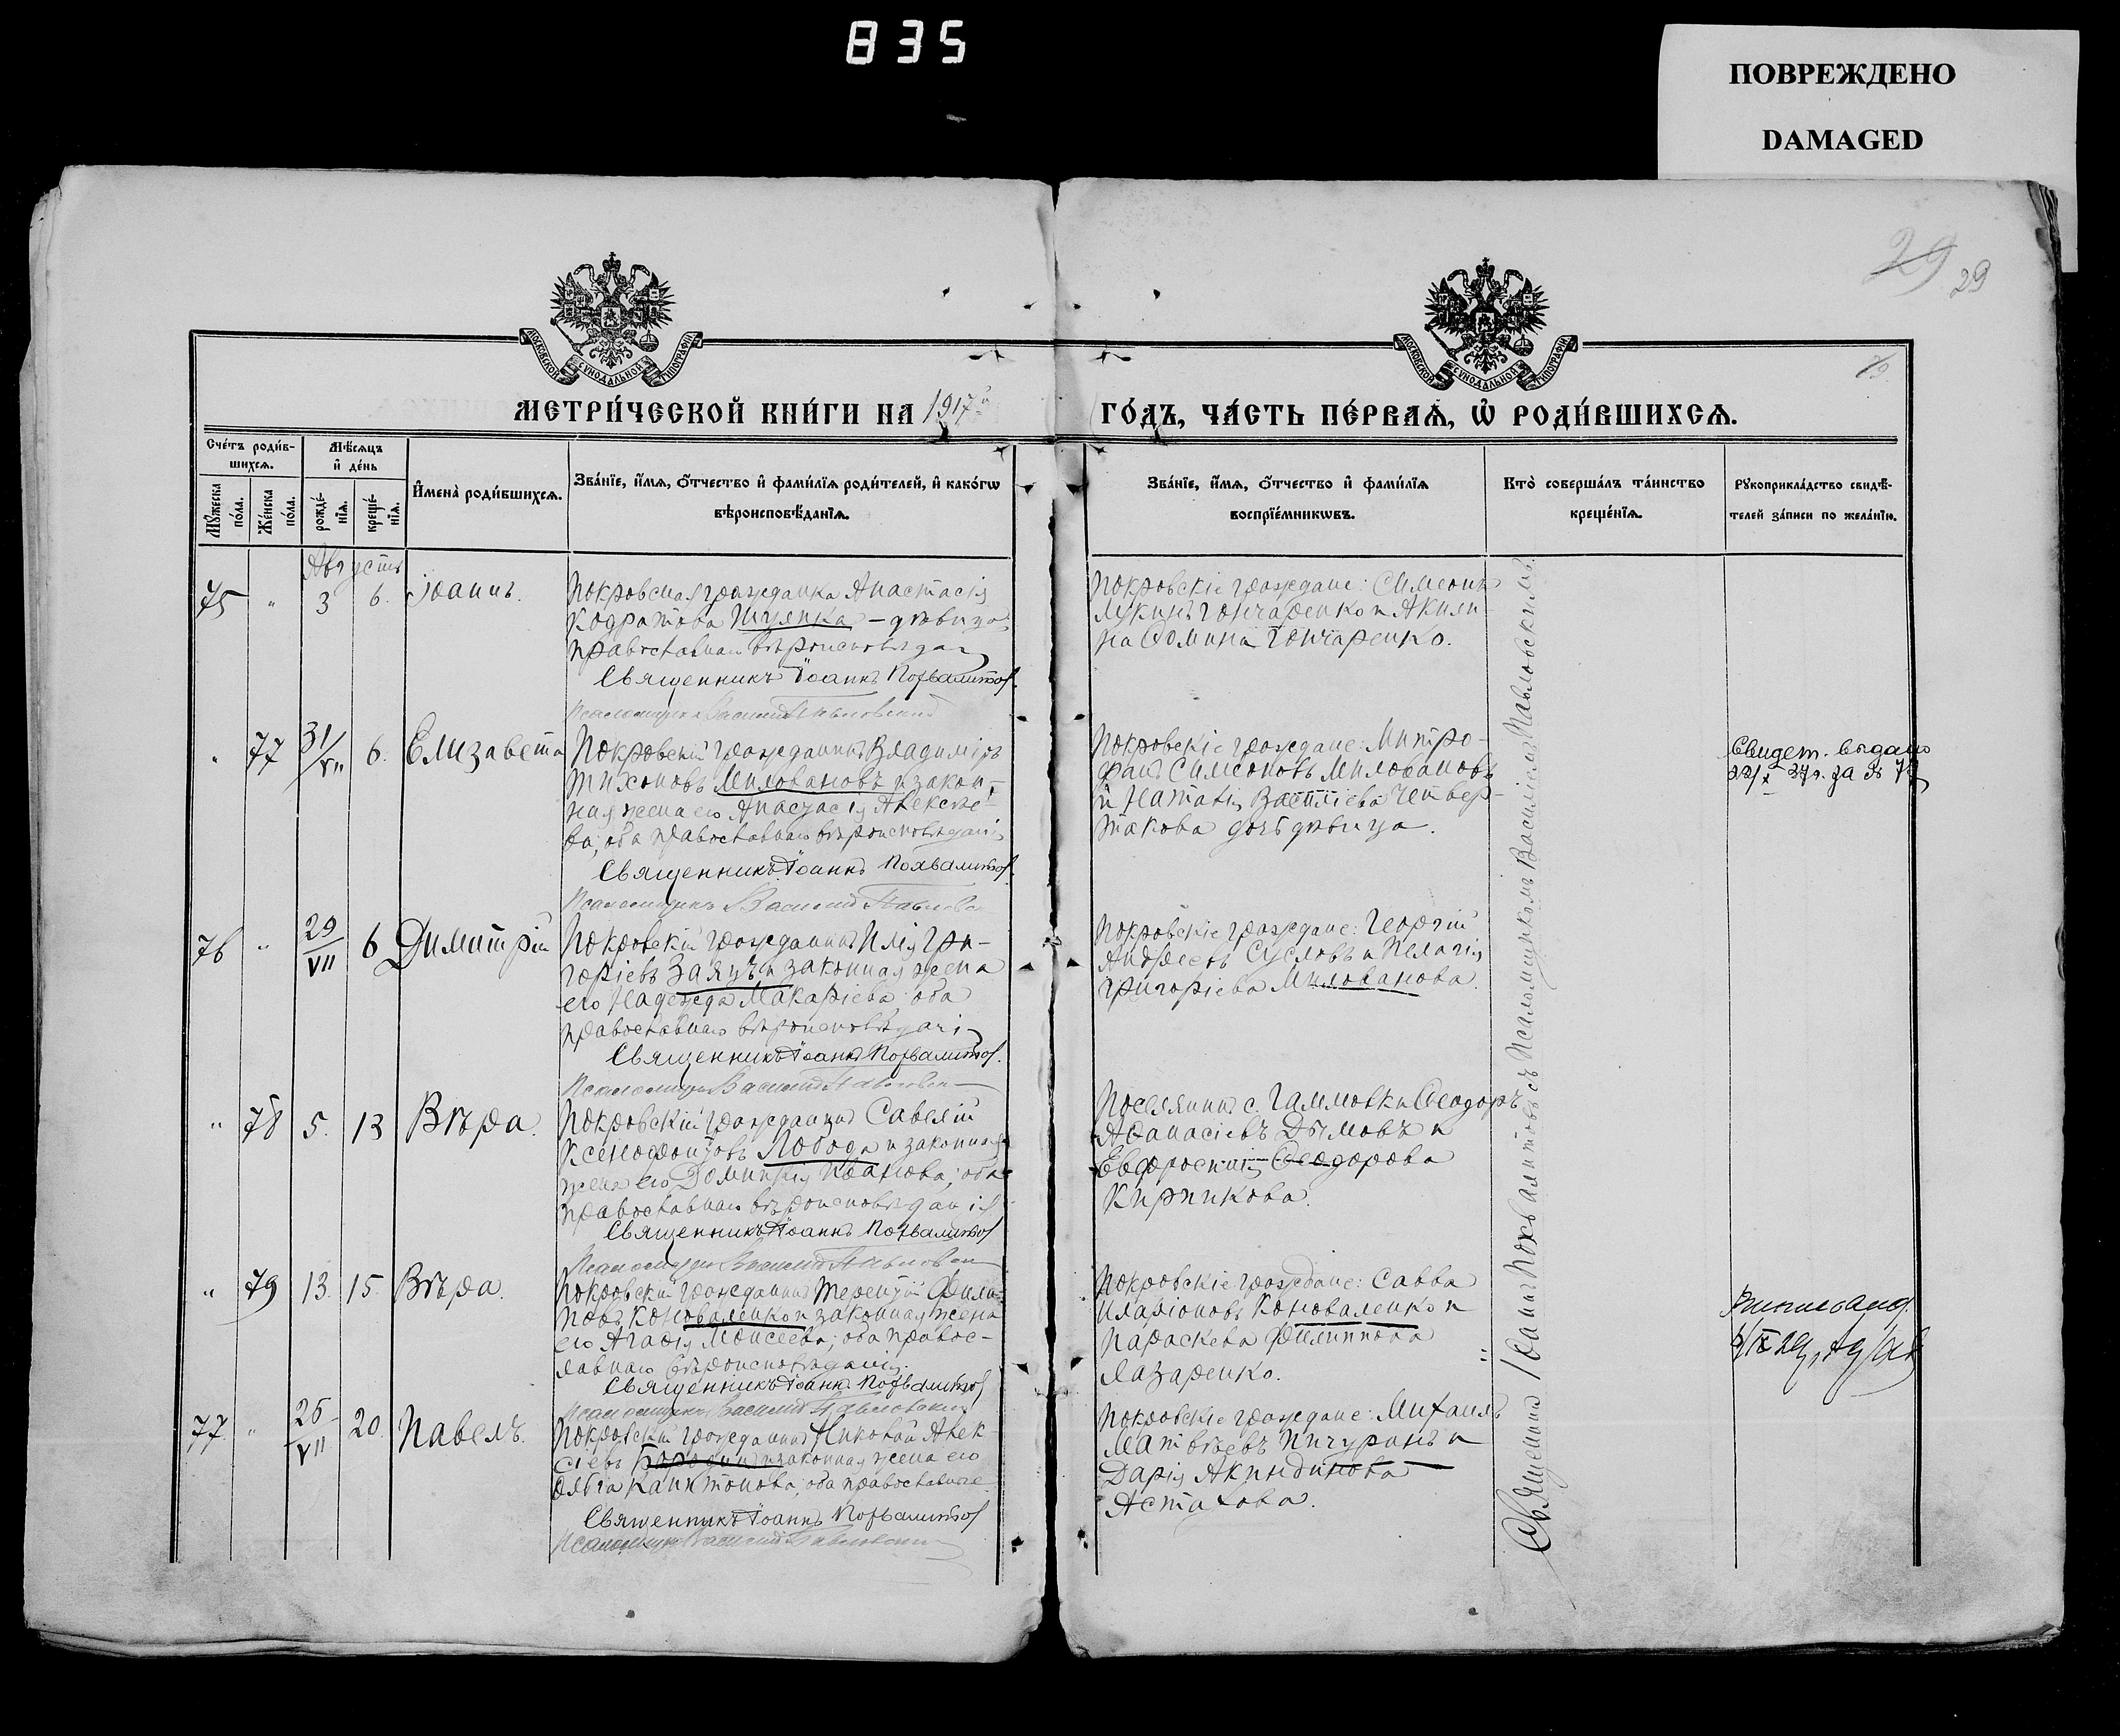 835
ПОВРЕЖДЕНО
DAMAGED
29 29
МОСКОВСКОЙ СѴНОДАЛЬНОЙ ТИПОГРАФІИ
МОСКОВСКОЙ СѴНОДАЛЬНОЙ ТИПОГРАФІИ
МЕТРИ́ЧЕСКОЙ КНИ́ГИ НА 1917й
ГО́ДЪ, ЧА́СТЬ ПЕ́РВАѦ, Ѡ҆ РОДИ́ВШИХСѦ.
Сче́тъ роди́в-
шихсѧ.
Мѣ́сѧцъ
и҆ де́нь
Мꙋ́жеска по́ла.
Же́нска по́ла.
рожде́-
нїѧ.
креще́-
нїѧ.
И҆мена̀ роди́вшихсѧ.
Зва́нїе, и҆́мѧ, ѻ҆́тчество и҆ фами́лїѧ роди́телей, и҆ како́гѡ
вѣроисповѣ́данїѧ.
Зва́нїе, и҆́мѧ, ѻ҆́тчество и҆ фами́лїѧ
воспрїе́мникѡвъ.
Кто̀ соверша́лъ та́инство
креще́нїѧ.
Рꙋкоприкла́дство свидѣ́-
телей за́писи по жела́нїю.
Августъ
75 " 3 6. Іоаннъ.
Покровская гражданка Анастасія
Кодратова Шулика – дѣвица,
православнаго вѣроисповѣданія
Священникъ Іоаннъ Похвалитов
Псаломщикъ Василій Павловскій
Покровскіе граждане: Симеонъ
Лукинъ Гончаренко и Акили-
на Ѳомина Гончаренко.
" 77 31/VII 6. Елизавета
Покровскій гражданинъ Владиміръ
Тихоновъ Миловановъ и закон-
ная жена его Анастасія Алексѣе-
ва, оба православнаго вѣроисповѣданія
Священникъ Іоаннъ Похвалитов
Псаломщикъ Василій Павловскій
Покровскіе граждане: Митро-
фанъ Симеоновъ Миловановъ
и Наталія Васильева Четвер-
такова дочь дѣвица.
Свидет. выдано
76 " 29/VII 6 Димитрій
Покровскій гражданинъ Илія Гри-
горіевъ Заяцъ и законная жена
его Надежда Макаріева, оба
православнаго вѣроисповѣданія
Священникъ Іоаннъ Похвалитов.
Псаломщикъ Василій Павловскій
Покровскіе граждане: Георгій
Андреевъ Сусловъ и Пелагія
Григоріева Милованова.
" 78 5. 13 Вѣра.
Покровскій гражданинъ Савелій
Ксенофонтовъ Лобода и законная
жена его Домникія Иванова; оба
православнаго вѣроисповѣданія
Священникъ Іоаннъ Похвалитов
Псаломщикъ Василій Павловскій
Поселянинъ с. Гаммовки Ѳеодоръ
Аѳанасіевъ Дымовъ и
Евфросинія Ѳеодорова
Кирпикова.
" 79 13. 15. Вѣра.
Покровскій гражданинъ Терентій Филип-
повъ Коноваленко и законная жена
его Агафія Моисеева; оба правос-
лавнаго вѣроисповѣданія.
Священникъ Іоаннъ Похвалитов
Псаломщикъ Василій Павловскій
Покровскіе граждане: Савва
Иларіоновъ Коноваленко и
Параскева Филиппова
Лазаренко.
77. " 26/VII 20. Павелъ.
Покровскій гражданинъ Николай Алек-
сіевъ и законная жена его
Ольга Капитонова, оба православные
Священникъ Іоаннъ Похвалитов
Псаломщикъ Василій Павловскій
Покровскіе граждане: Михаилъ
Матвѣевъ Пичуринъ и
Дарія Акиндинова
Астахова.
Священникъ Іоаннъ Похвалитовъ съ Псаломщикомъ Василіемъ Павловскимъ.